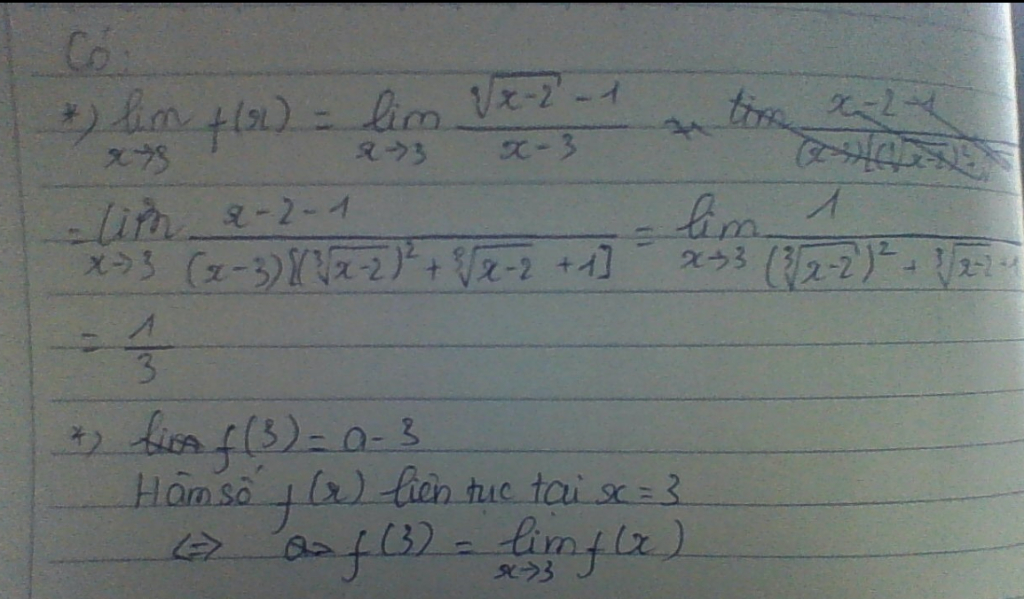 Có:
*) lim x→3 f(x) = lim x→3 (∛(x-2) - 1)/(x-3)
= lim x→3 (x-2-1)/((x-3)[(∛(x-2))² + ∛(x-2) + 1]) = lim x→3 1/((∛(x-2))² + ∛(x-2)
= 1/3
*) f(3) = a-3
Hàm số f(x) liên tục tại x = 3
⇔ f(3) = lim x→3 f(x)